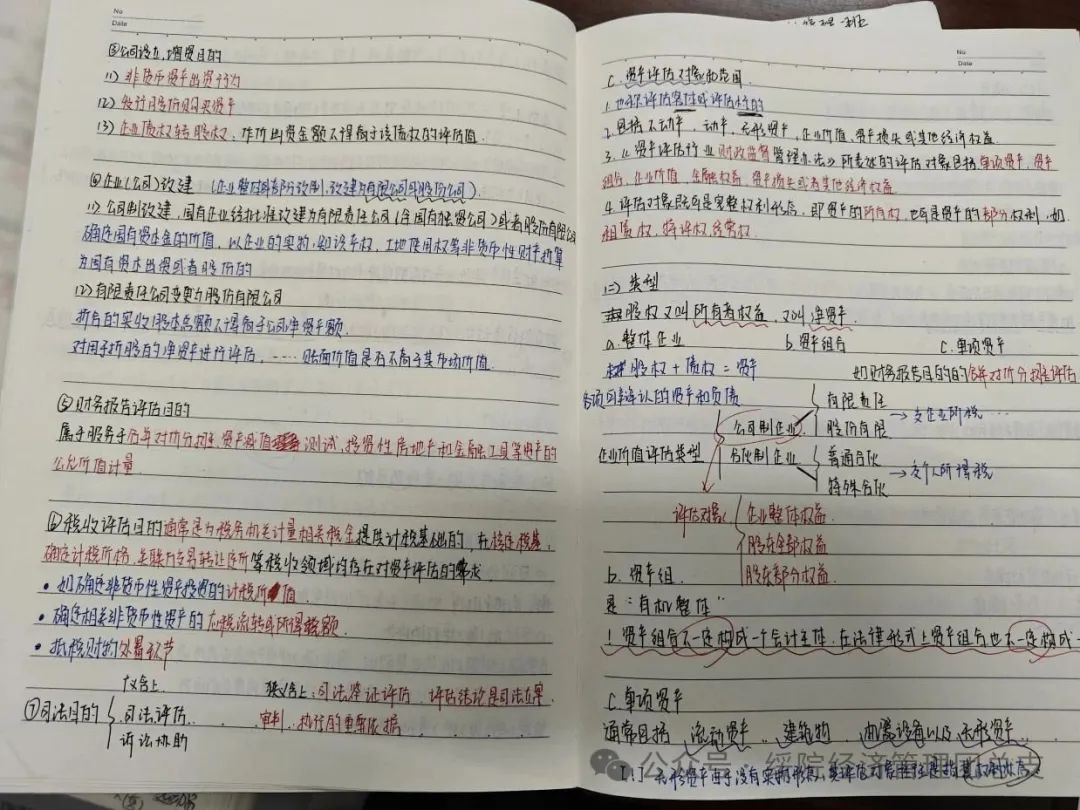 No
Date
③公司设立、增资目的
(1) 非货币资产出资行为
(2) 发行股份购买资产
(3) 企业债权转股权,作价出资金额不得高于该债权的评估值.
④企业(公司)改建 (企业整体或部分改制,改建为有限公司或股份公司).
(1) 公司制改建,国有企业经批准改建为有限责任公司(含国有独资公司)或者股份有限公司
确定国有资本金的价值,以企业的实物、知识产权、土地使用权等非货币性财产折算
为国有资本出资或者股份的
(2) 有限责任公司变更为股份有限公司
折合的实收股本总额不得高于公司净资产额.
对用于折股的净资产进行评估,……账面价值是否不高于其市场价值.
⑤财务报告评估目的
属于服务于合并对价分摊、资产减值测试、投资性房地产和金融工具等资产的
公允价值计量.
⑥税收评估目的通常是为税务机关计量相关税金提供计税基础的,在核定税基、
确定计税价格、关联方交易转让定价等税收领域均存在对资产评估的需求
• 如确定非货币性资产投资的计税价值.
• 确定相关非货币性资产的应税流转或所得税额.
• 抵税财物处置环节
广义含上. 狭义含上:司法鉴证评估. 评估结论是司法立案、
⑦司法目的 司法评估. 审判、执行的重要依据
诉讼协助
No
Date
C. 资产评估对象和范围.
1. 也称评估客体或评估标的
2. 包括不动产,动产,无形资产,企业价值,资产损失或其他经济权益.
3.《资产评估行业财政监督管理办法》所表述的评估对象包括单项资产、资产
组合、企业价值、金融权益、资产损失或者其他经济权益.
4. 评估对象既可是完整权利形态,即资产的所有权,也可是资产的部分权利,如
租赁权,特许权,经营权.
(二) 类型
股权又叫所有者权益,又叫净资产.
a. 整体企业 b 资产组合 C. 单项资产
股权 + 债权 = 资产 如财务报告目的的合并对价分摊评估
各项可辨认的资产和负债
公司制企业 有限责任 股份有限 → 交企业所得税…
企业价值评估类型
合伙制企业 普通合伙 特殊合伙 → 交个人所得税
评估对象 企业整体权益.
股东全部权益
股东部分权益.
b. 资产组.
是“有机整体”
! 资产组合不一定构成一个会计主体,在法律形式上资产组合也不一定构成一
C. 单项资产
通常包括,流动资产,建筑物,机器设备以及无形资产.
公众号·绥院经济管理团总支